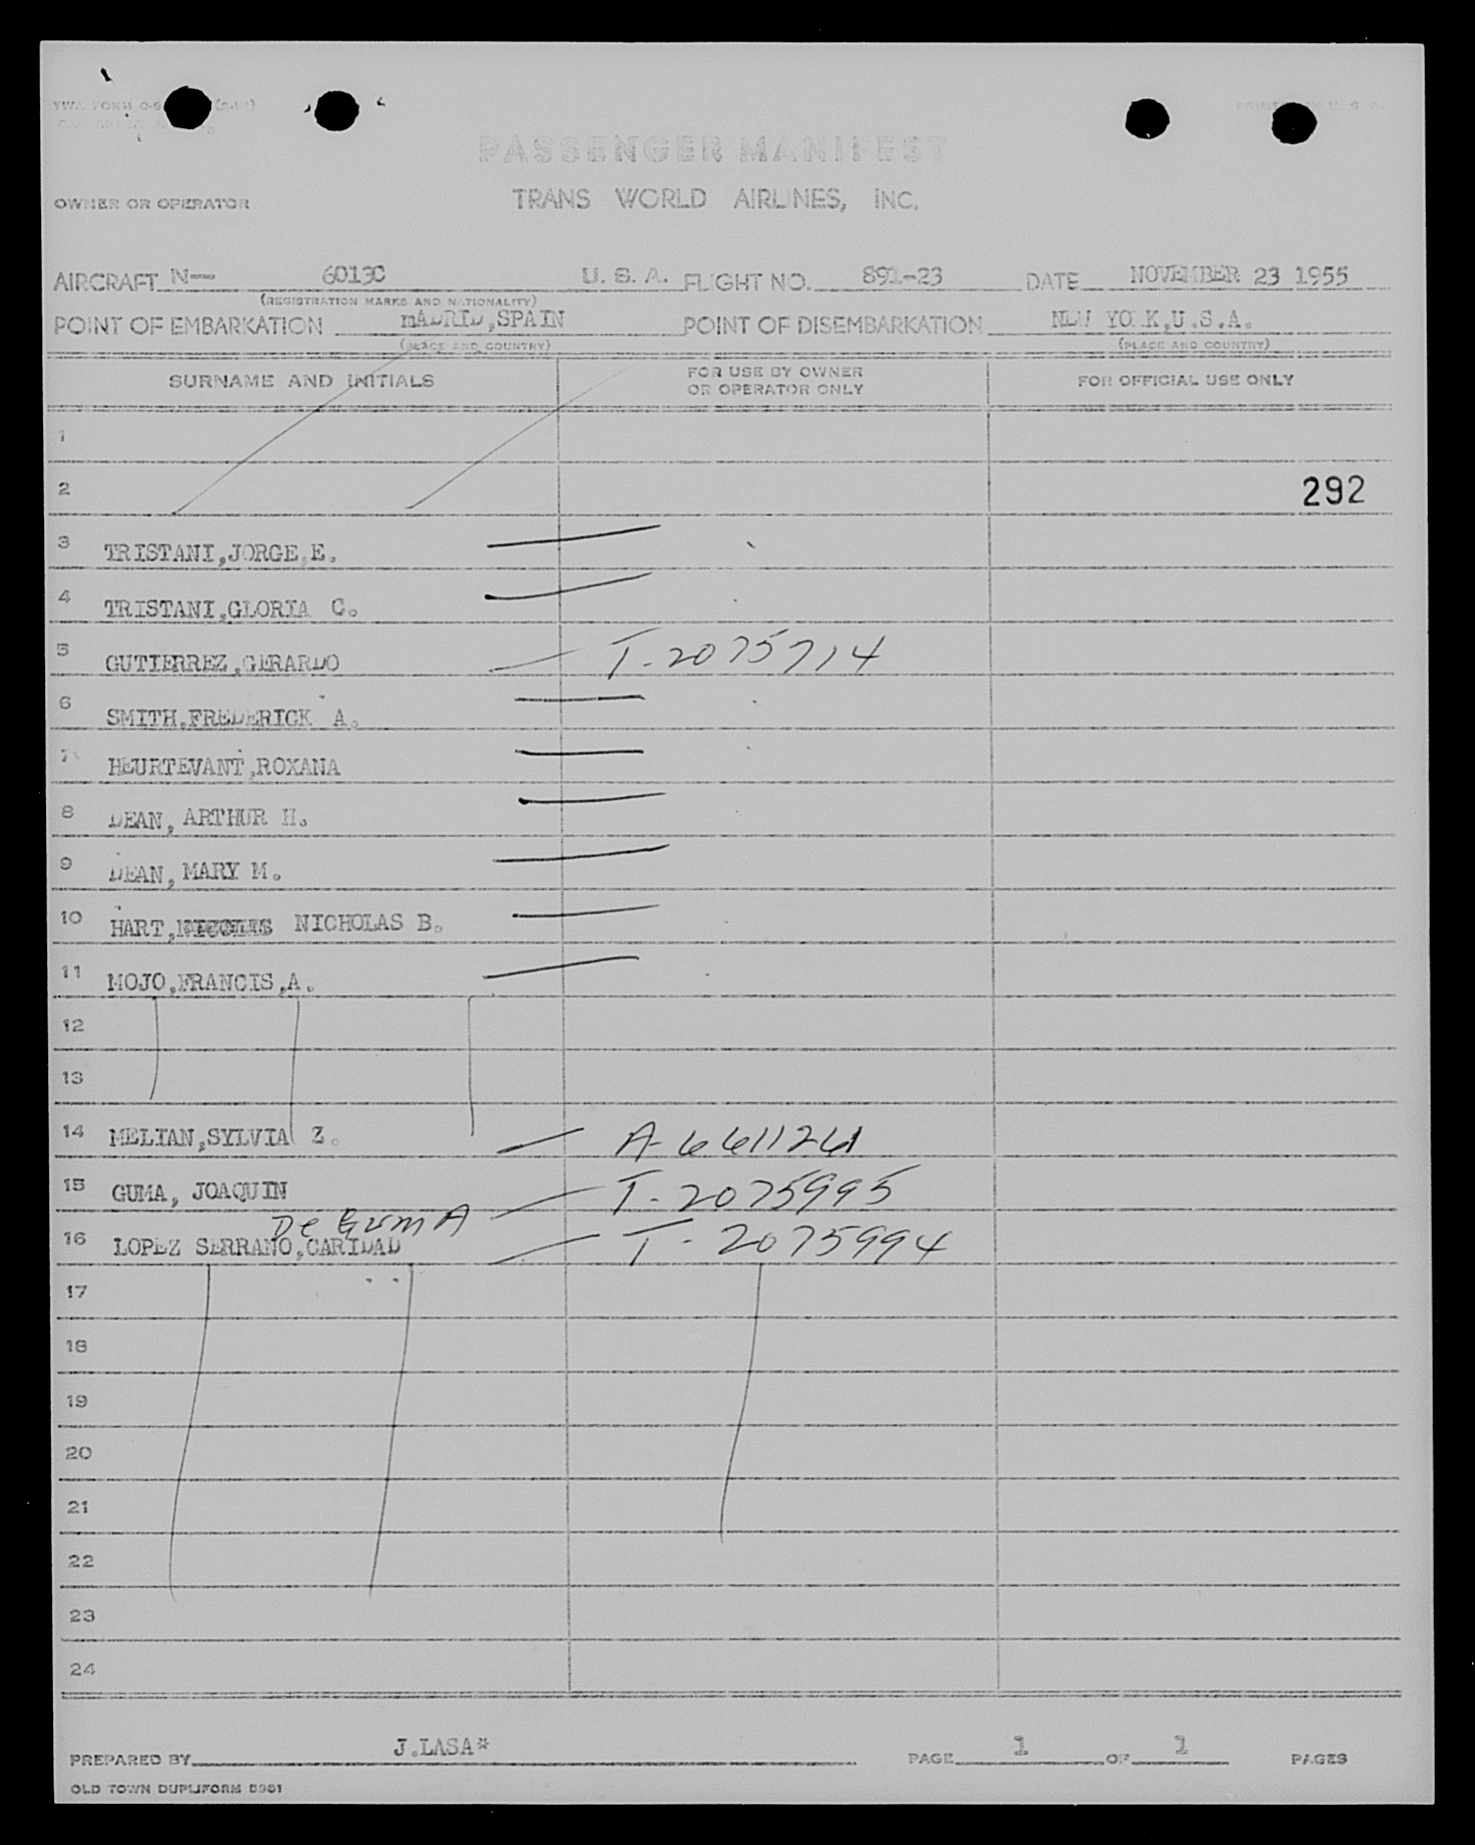 PASSENGER MANIFEST
OWNER OR OPERATOR TRANS WORLD AIRLINES, INC.
AIRCRAFT N-- 6013C U. S. A. FLIGHT NO. 891-23 DATE NOVEMBER 23 1955
(REGISTRATION MARKS AND NATIONALITY)
POINT OF EMBARKATION MADRID,SPAIN POINT OF DISEMBARKATION NEW YORK,U.S.A.
(PLACE AND COUNTRY) (PLACE AND COUNTRY)
SURNAME AND INITIALS FOR USE BY OWNER OR OPERATOR ONLY FOR OFFICIAL USE ONLY
1
2 292
3 TRISTANI,JORGE.E.
4 TRISTANI,GLORIA C.
5 GUTIERREZ,GERARDO T-2075714
6 SMITH,FREDERICK A.
7 HEURTEVANT,ROXANA
8 DEAN, ARTHUR H.
9 DEAN, MARY M.
10 HART, NICHOLAS B.
11 MOJO,FRANCIS,A.
12
13
14 MELIAN,SYLVIA Z. A-6611261
15 GUMA, JOAQUIN T-2075995
De GUMA
16 LOPEZ SERRANO,CARIDAD T-2075994
17
18
19
20
21
22
23
24
PREPARED BY J.LASA* PAGE 1 OF 1 PAGES
OLD TOWN DUPLIFORM 5981